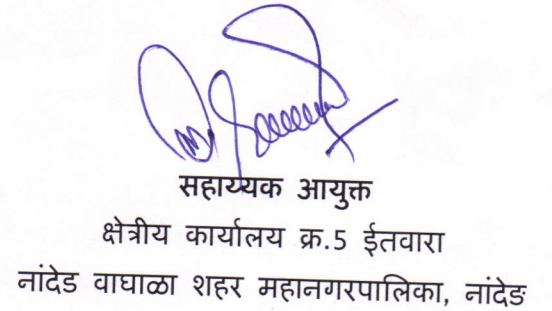 सहाय्यक आयुक्त
क्षेत्रीय कार्यालय क्र.5 ईतवारा
नांदेड वाघाळा शहर महानगरपालिका, नांदेड